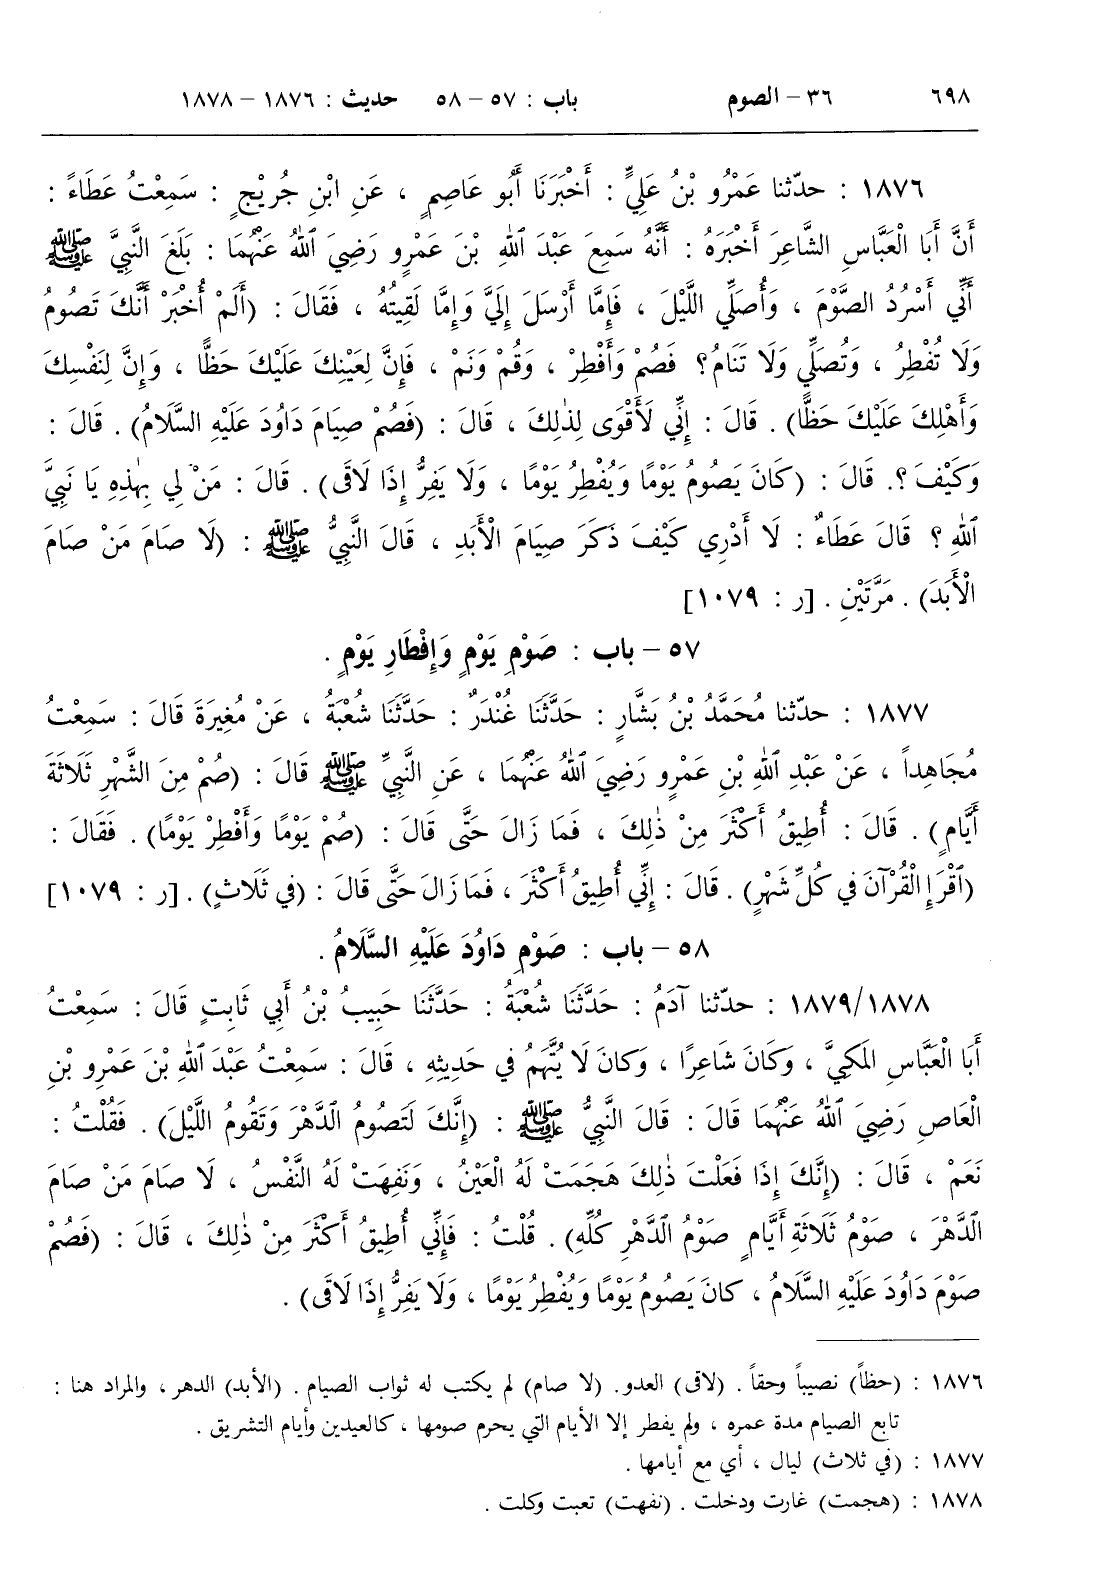 ٦٩٨ ٣٦ – الصوم باب : ٥٧ – ٥٨ حديث : ١٨٧٦ – ١٨٧٨
١٨٧٦ : حدّثنا عَمْرُو بْنُ عَلِيٍّ : أَخْبَرَنَا أَبُو عَاصِمٍ ، عَنِ ابْنِ جُرَيْجٍ : سَمِعْتُ عَطَاءً :
أَنَّ أَبَا الْعَبَّاسِ الشَّاعِرَ أَخْبَرَهُ : أَنَّهُ سَمِعَ عَبْدَ ٱللهِ بْنَ عَمْرٍو رَضِيَ ٱللهُ عَنْهُمَا : بَلَغَ النَّبِيَّ ﷺ
أَنِّي أَسْرُدُ الصَّوْمَ ، وَأُصَلِّي اللَّيْلَ ، فَإِمَّا أَرْسَلَ إِلَيَّ وَإِمَّا لَقِيتُهُ ، فَقَالَ : (أَلَمْ أُخْبَرْ أَنَّكَ تَصُومُ
وَلَا تُفْطِرُ ، وَتُصَلِّي وَلَا تَنَامُ؟ فَصُمْ وَأَفْطِرْ ، وَقُمْ وَنَمْ ، فَإِنَّ لِعَيْنِكَ عَلَيْكَ حَظًّا ، وَإِنَّ لِنَفْسِكَ
وَأَهْلِكَ عَلَيْكَ حَظًّا) . قَالَ : إِنِّي لَأَقْوَى لِذٰلِكَ ، قَالَ : (فَصُمْ صِيَامَ دَاوُدَ عَلَيْهِ السَّلَامُ) . قَالَ :
وَكَيْفَ ؟. قَالَ : (كَانَ يَصُومُ يَوْمًا وَيُفْطِرُ يَوْمًا ، وَلَا يَفِرُّ إِذَا لَاقَى) . قَالَ : مَنْ لِي بِهٰذِهِ يَا نَبِيَّ
ٱللهِ ؟ قَالَ عَطَاءٌ : لَا أَدْرِي كَيْفَ ذَكَرَ صِيَامَ الْأَبَدِ ، قَالَ النَّبِيُّ ﷺ : (لَا صَامَ مَنْ صَامَ
الْأَبَدَ) . مَرَّتَيْنِ . [ر : ١٠٧٩]
٥٧ – باب : صَوْمِ يَوْمٍ وَإِفْطَارِ يَوْمٍ .
١٨٧٧ : حدّثنا مُحَمَّدُ بْنُ بَشَّارٍ : حَدَّثَنَا غُنْدَرٌ : حَدَّثَنَا شُعْبَةُ ، عَنْ مُغِيرَةَ قَالَ : سَمِعْتُ
مُجَاهِداً ، عَنْ عَبْدِ ٱللهِ بْنِ عَمْرٍو رَضِيَ ٱللهُ عَنْهُمَا ، عَنِ النَّبِيِّ ﷺ قَالَ : (صُمْ مِنَ الشَّهْرِ ثَلَاثَةَ
أَيَّامٍ) . قَالَ : أُطِيقُ أَكْثَرَ مِنْ ذٰلِكَ ، فَمَا زَالَ حَتَّى قَالَ : (صُمْ يَوْمًا وَأَفْطِرْ يَوْمًا) . فَقَالَ :
(ٱقْرَإِ الْقُرْآنَ في كُلِّ شَهْرٍ) . قَالَ : إِنِّي أُطِيقُ أَكْثَرَ ، فَمَا زَالَ حَتَّى قَالَ : (في ثَلَاثٍ) . [ر : ١٠٧٩]
٥٨ – باب : صَوْمِ دَاوُدَ عَلَيْهِ السَّلَامُ .
١٨٧٩/١٨٧٨ : حدّثنا آدَمُ : حَدَّثَنَا شُعْبَةُ : حَدَّثَنَا حَبِيبُ بْنُ أَبِي ثَابِتٍ قَالَ : سَمِعْتُ
أَبَا الْعَبَّاسِ المَكِيَّ ، وَكَانَ شَاعِرًا ، وَكانَ لَا يُتَّهَمُ في حَدِيثِهِ ، قَالَ : سَمِعْتُ عَبْدَ ٱللهِ بْنَ عَمْرِو بْنِ
الْعَاصِ رَضِيَ ٱللهُ عَنْهُمَا قَالَ : قَالَ النَّبِيُّ ﷺ : (إِنَّكَ لَتَصُومُ الدَّهْرَ وَتَقُومُ اللَّيْلَ) . فَقُلْتُ :
نَعَمْ ، قَالَ : (إِنَّكَ إِذَا فَعَلْتَ ذٰلِكَ هَجَمَتْ لَهُ الْعَيْنُ ، وَنَفِهَتْ لَهُ النَّفْسُ ، لَا صَامَ مَنْ صَامَ
الدَّهْرَ ، صَوْمُ ثَلَاثَةِ أَيَّامٍ صَوْمُ الدَّهْرِ كُلِّهِ) . قُلْتُ : فَإِنِّي أُطِيقُ أَكْثَرَ مِنْ ذٰلِكَ ، قَالَ : (فَصُمْ
صَوْمَ دَاوُدَ عَلَيْهِ السَّلَامُ ، كانَ يَصُومُ يَوْمًا وَيُفْطِرُ يَوْمًا ، وَلَا يَفِرُّ إِذَا لَاقَى) .
١٨٧٦ : (حظاً) نصيباً وحقاً . (لاقى) العدو. (لا صام) لم يكتب له ثواب الصيام . (الأبد) الدهر ، والمراد هنا :
تابع الصيام مدة عمره ، ولم يفطر إلا الأيام التي يحرم صومها ، كالعيدين وأيام التشريق .
١٨٧٧ : (في ثلاث) ليال ، أي مع أيامها .
١٨٧٨ : (هجمت) غارت ودخلت . (نفهت) تعبت وكلت .